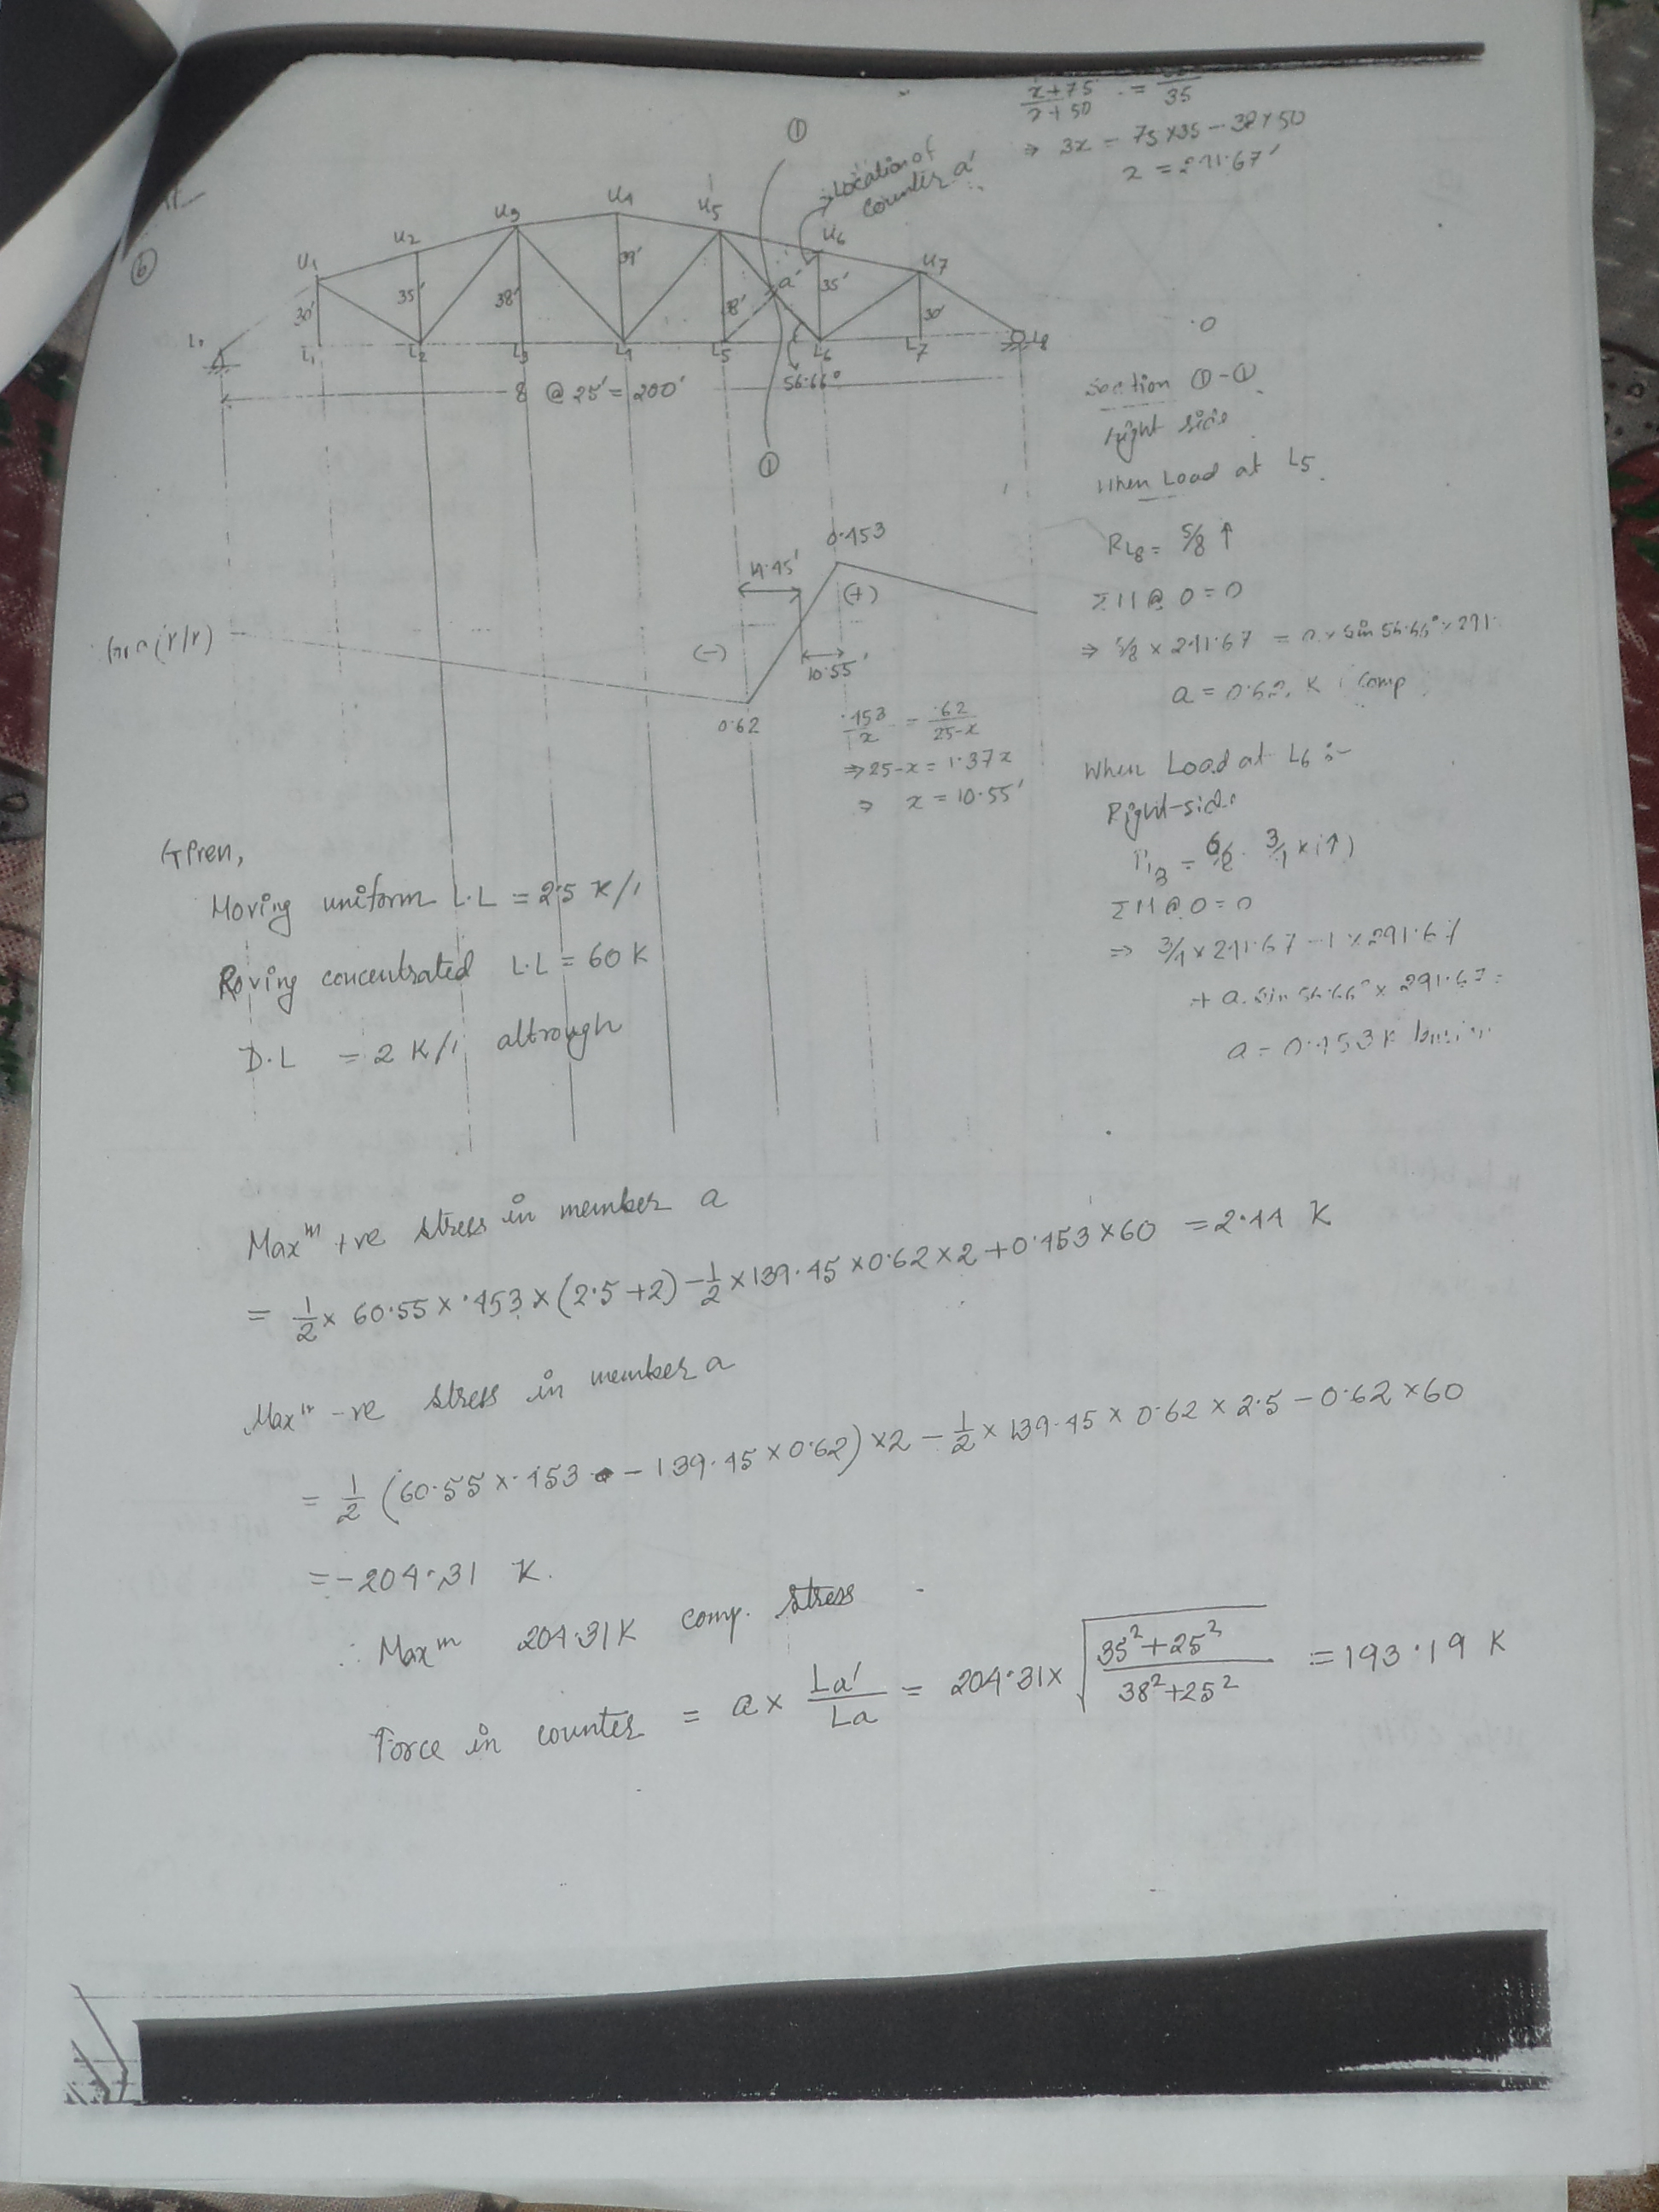 x+75 / x+50 = 38 / 35
⇒ 3x = 75×35 - 38×50
x = 241.67'
①
Location of
counter a'
⑥
U1 U2 U3 U4 U5 U6 U7
30' 35' 38' 39' 38' a' 35' 30'
L0 L1 L2 L3 L4 L5 L6 L7 L8
8 @ 25' = 200'
56.66°
①
Section ①-①
right side
When Load at L5
RL8 = 5/8 ↑
ΣM@0=0
⇒ 5/8 × 241.67 = a × sin 56.66° × 291.
a = 0.62 K (comp
0.453
14.45'
(+)
(-)
10.55'
0.62
.453 / x = .62 / 25-x
⇒ 25-x = 1.37x
⇒ x = 10.55'
When Load at L6 :-
Right-side
= 6/8 = 3/4 K (↑)
ΣM@0=0
⇒ 3/4 × 241.67 - 1 × 291.67
+ a. sin 56.66° × 291.67 =
a = 0.453 K
Given,
Moving uniform L.L = 2.5 K/'
Roving concentrated L.L = 60 K
D.L = 2 K/' altrough
Maxm +ve stress in member a
= 1/2 × 60.55 × .453 × (2.5+2) - 1/2 × 139.45 × 0.62 × 2 + 0.453 × 60 = 2.44 K
Maxm -ve stress in member a
= 1/2 (60.55 × .453 - 139.45 × 0.62) × 2 - 1/2 × 139.45 × 0.62 × 2.5 - 0.62 × 60
= -204.31 K.
∴ Maxm 204.31K comp. stress
Force in counter = a × La' / La = 204.31 × √(35²+25² / 38²+25²) = 193.19 K